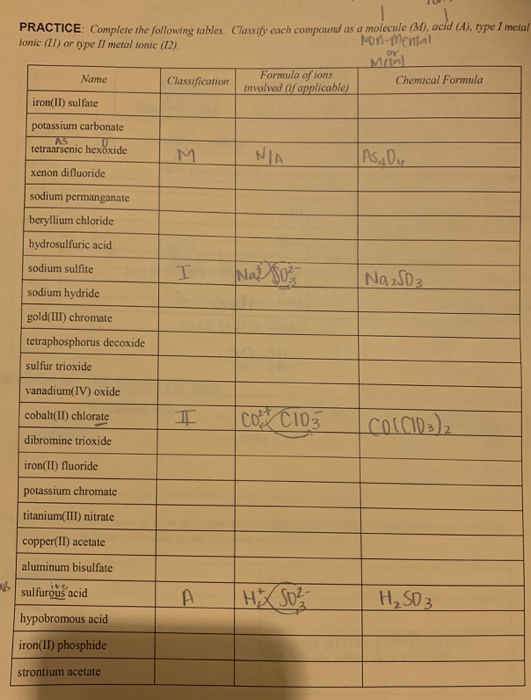 PRACTICE: Complete the following tables. Classify each compound as a molecule (M), acid (A), type I metal
ionic (I1) or type II metal ionic (I2).
Non-mental
or
Name Classification Formula of ions involved (if applicable) Chemical Formula
iron(II) sulfate
potassium carbonate
As O
tetraarsenic hexoxide M N/A As4O4
xenon difluoride
sodium permanganate
beryllium chloride
hydrosulfuric acid
sodium sulfite I Na SO3 2- Na2SO3
sodium hydride
gold(III) chromate
tetraphosphorus decoxide
sulfur trioxide
vanadium(IV) oxide
cobalt(II) chlorate II CO2+ ClO3- CO(ClO3)2
dibromine trioxide
iron(II) fluoride
potassium chromate
titanium(III) nitrate
copper(II) acetate
aluminum bisulfate
ite
sulfurous acid A H+ SO3 2- H2SO3
hypobromous acid
iron(II) phosphide
strontium acetate